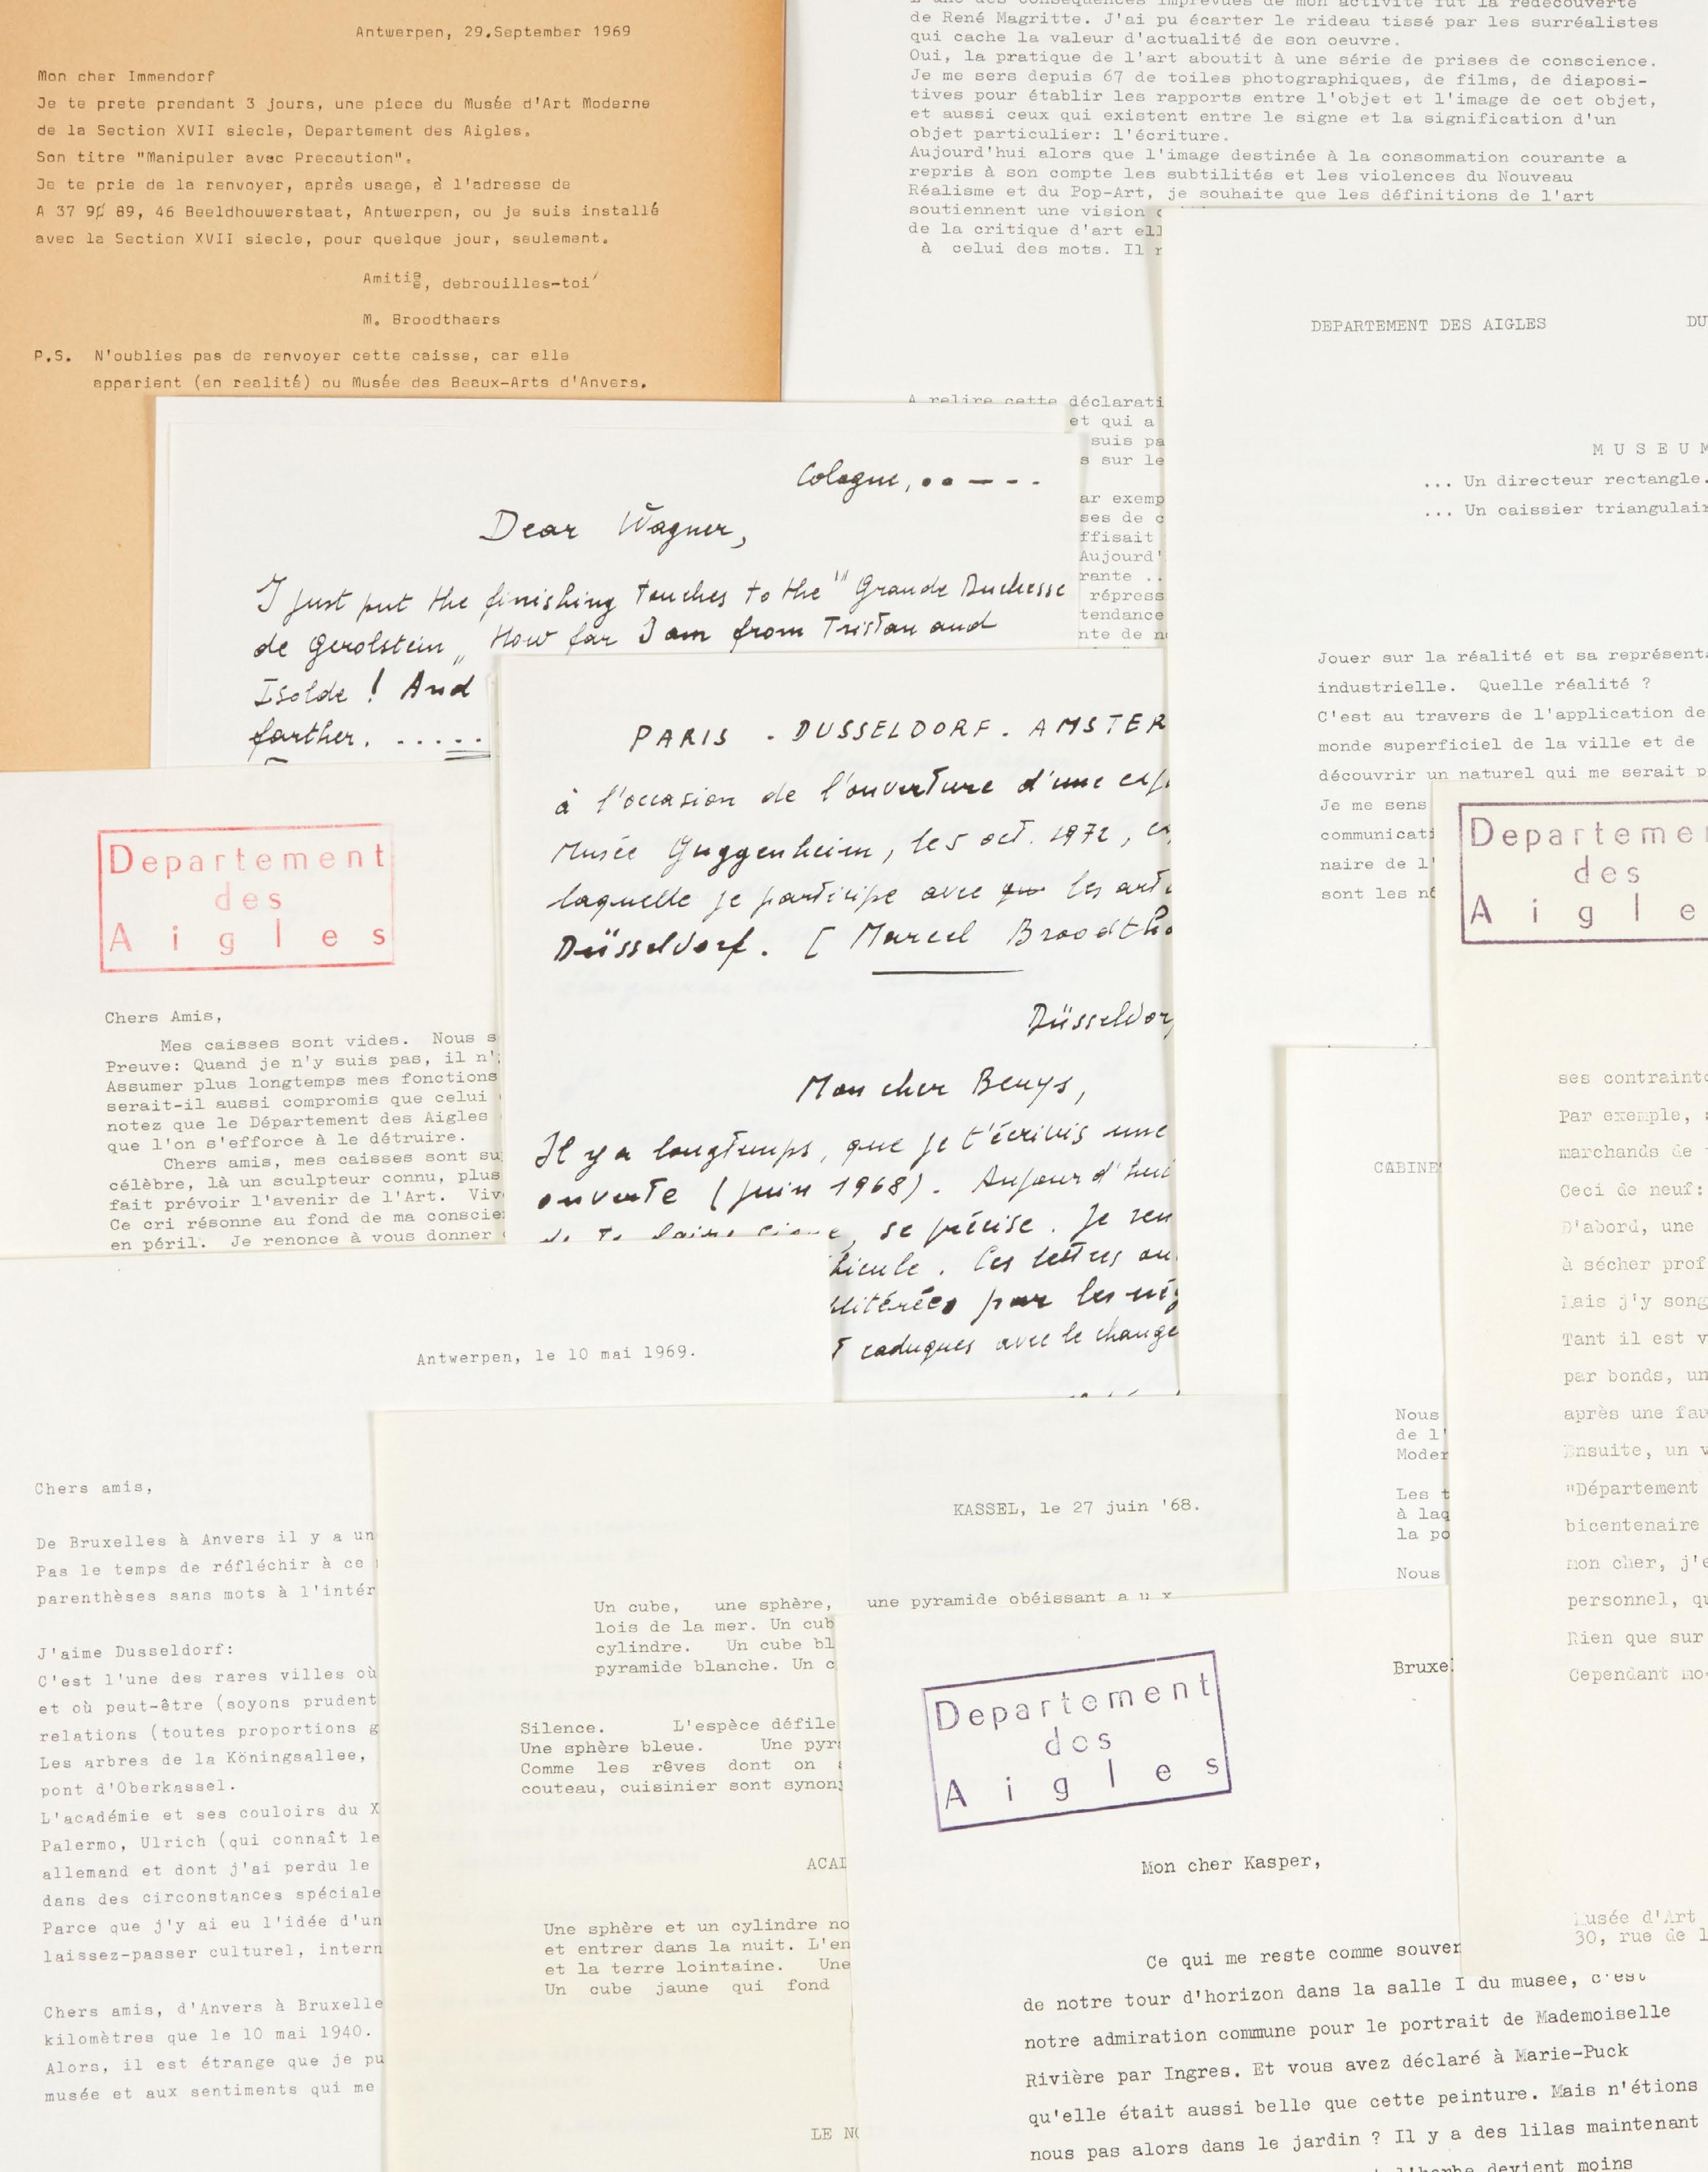 Antwerpen, 29.September 1969
Mon cher Immendorf
Je te prete prendant 3 jours, une piece du Musée d'Art Moderne
de la Section XVII siecle, Departement des Aigles.
Son titre "Manipuler avec Precaution".
Je te prie de la renvoyer, après usage, à l'adresse de
A 37 90 89, 46 Beeldhouwerstaat, Antwerpen, ou je suis installé
avec la Section XVII siecle, pour quelque jour, seulement.
Amitié, debrouilles-toi
M. Broodthaers
P.S. N'oublies pas de renvoyer cette caisse, car elle
apparient (en realité) ou Musée des Beaux-Arts d'Anvers.
L'une des conséquences imprévues de mon activité fut la redécouverte
de René Magritte. J'ai pu écarter le rideau tissé par les surréalistes
qui cache la valeur d'actualité de son oeuvre.
Oui, la pratique de l'art aboutit à une série de prises de conscience.
Je me sers depuis 67 de toiles photographiques, de films, de diaposi-
tives pour établir les rapports entre l'objet et l'image de cet objet,
et aussi ceux qui existent entre le signe et la signification d'un
objet particulier: l'écriture.
Aujourd'hui alors que l'image destinée à la consommation courante a
repris à son compte les subtilités et les violences du Nouveau
Réalisme et du Pop-Art, je souhaite que les définitions de l'art
soutiennent une vision
de la critique d'art
à celui des mots. Il
A relire cette déclarati
et qui a
suis pa
s sur le
ar exemp
ses de c
ffisait
Aujourd'
rante ..
répress
tendance
nte de n
DEPARTEMENT DES AIGLES
DU
MUSEUM
... Un directeur rectangle.
... Un caissier triangulair
Jouer sur la réalité et sa représent
industrielle. Quelle réalité ?
C'est au travers de l'application de
monde superficiel de la ville et de
découvrir un naturel qui me serait p
Je me sens
communicati
naire de l'
sont les né
Cologne, .. - - . .
Dear Wagner,
I just put the finishing touches to the "Grande Duchesse
de Gerolstein„ How far I am from Tristan and
Isolde ! And
farther. .....
PARIS . DUSSELDORF . AMSTER
à l'occasion de l'ouverture d'une exp
Musée Guggenheim, le 5 oct. 1972,
laquelle je participe avec les art
Düsseldorf. [ Marcel Broodtha
Düsseldor
Mon cher Beuys,
Il y a longtemps, que je t'écrivis une
ouverte (juin 1968). Aujourd'hui
se précise. Je
Ces lettres
par les
caduques avec le change
Departement
des
Aigles
Chers Amis,
Mes caisses sont vides. Nous s
Preuve: Quand je n'y suis pas, il n'
Assumer plus longtemps mes fonctions
serait-il aussi compromis que celui
notez que le Département des Aigles
que l'on s'efforce à le détruire.
Chers amis, mes caisses sont su
célèbre, là un sculpteur connu, plus
fait prévoir l'avenir de l'Art. Viv
Ce cri résonne au fond de ma conscie
en péril. Je renonce à vous donner
Departeme
des
Aigle
ses contrainte
Par exemple,
marchands de
Ceci de neuf:
D'abord, une
à sécher prof
Mais j'y song
Tant il est v
par bonds, un
après une fau
Ensuite, un v
"Département
bicentenaire
mon cher, j'e
personnel, qu
Rien que sur
Cependant mo
Musée d'Art
30, rue de l
CABINE
Nous
de l'
Moder
Les t
à laq
la po
Nous
Antwerpen, le 10 mai 1969.
Chers amis,
De Bruxelles à Anvers il y a un
Pas le temps de réfléchir à ce
parenthèses sans mots à l'intér
J'aime Dusseldorf:
C'est l'une des rares villes où
et où peut-être (soyons prudent
relations (toutes proportions g
Les arbres de la Köningsallee,
pont d'Oberkassel.
L'académie et ses couloirs du X
Palermo, Ulrich (qui connaît le
allemand et dont j'ai perdu le
dans des circonstances spéciale
Parce que j'y ai eu l'idée d'un
laissez-passer culturel, intern
Chers amis, d'Anvers à Bruxelle
kilomètres que le 10 mai 1940.
Alors, il est étrange que je pu
musée et aux sentiments qui me
KASSEL, le 27 juin '68.
Un cube, une sphère, une pyramide obéissant aux
lois de la mer. Un cub
cylindre. Un cube bl
pyramide blanche. Un c
Silence. L'espèce défile
Une sphère bleue. Une pyr
Comme les rêves dont on
couteau, cuisinier sont synony
ACAD
Une sphère et un cylindre no
et entrer dans la nuit. L'en
et la terre lointaine. Une
Un cube jaune qui fond
LE NO
Bruxe
Departement
des
Aigles
Mon cher Kasper,
Ce qui me reste comme souver
de notre tour d'horizon dans la salle I du musée, c'est
notre admiration commune pour le portrait de Mademoiselle
Rivière par Ingres. Et vous avez déclaré à Marie-Puck
qu'elle était aussi belle que cette peinture. Mais n'étions
nous pas alors dans le jardin ? Il y a des lilas maintenant
l'herbe devient moins